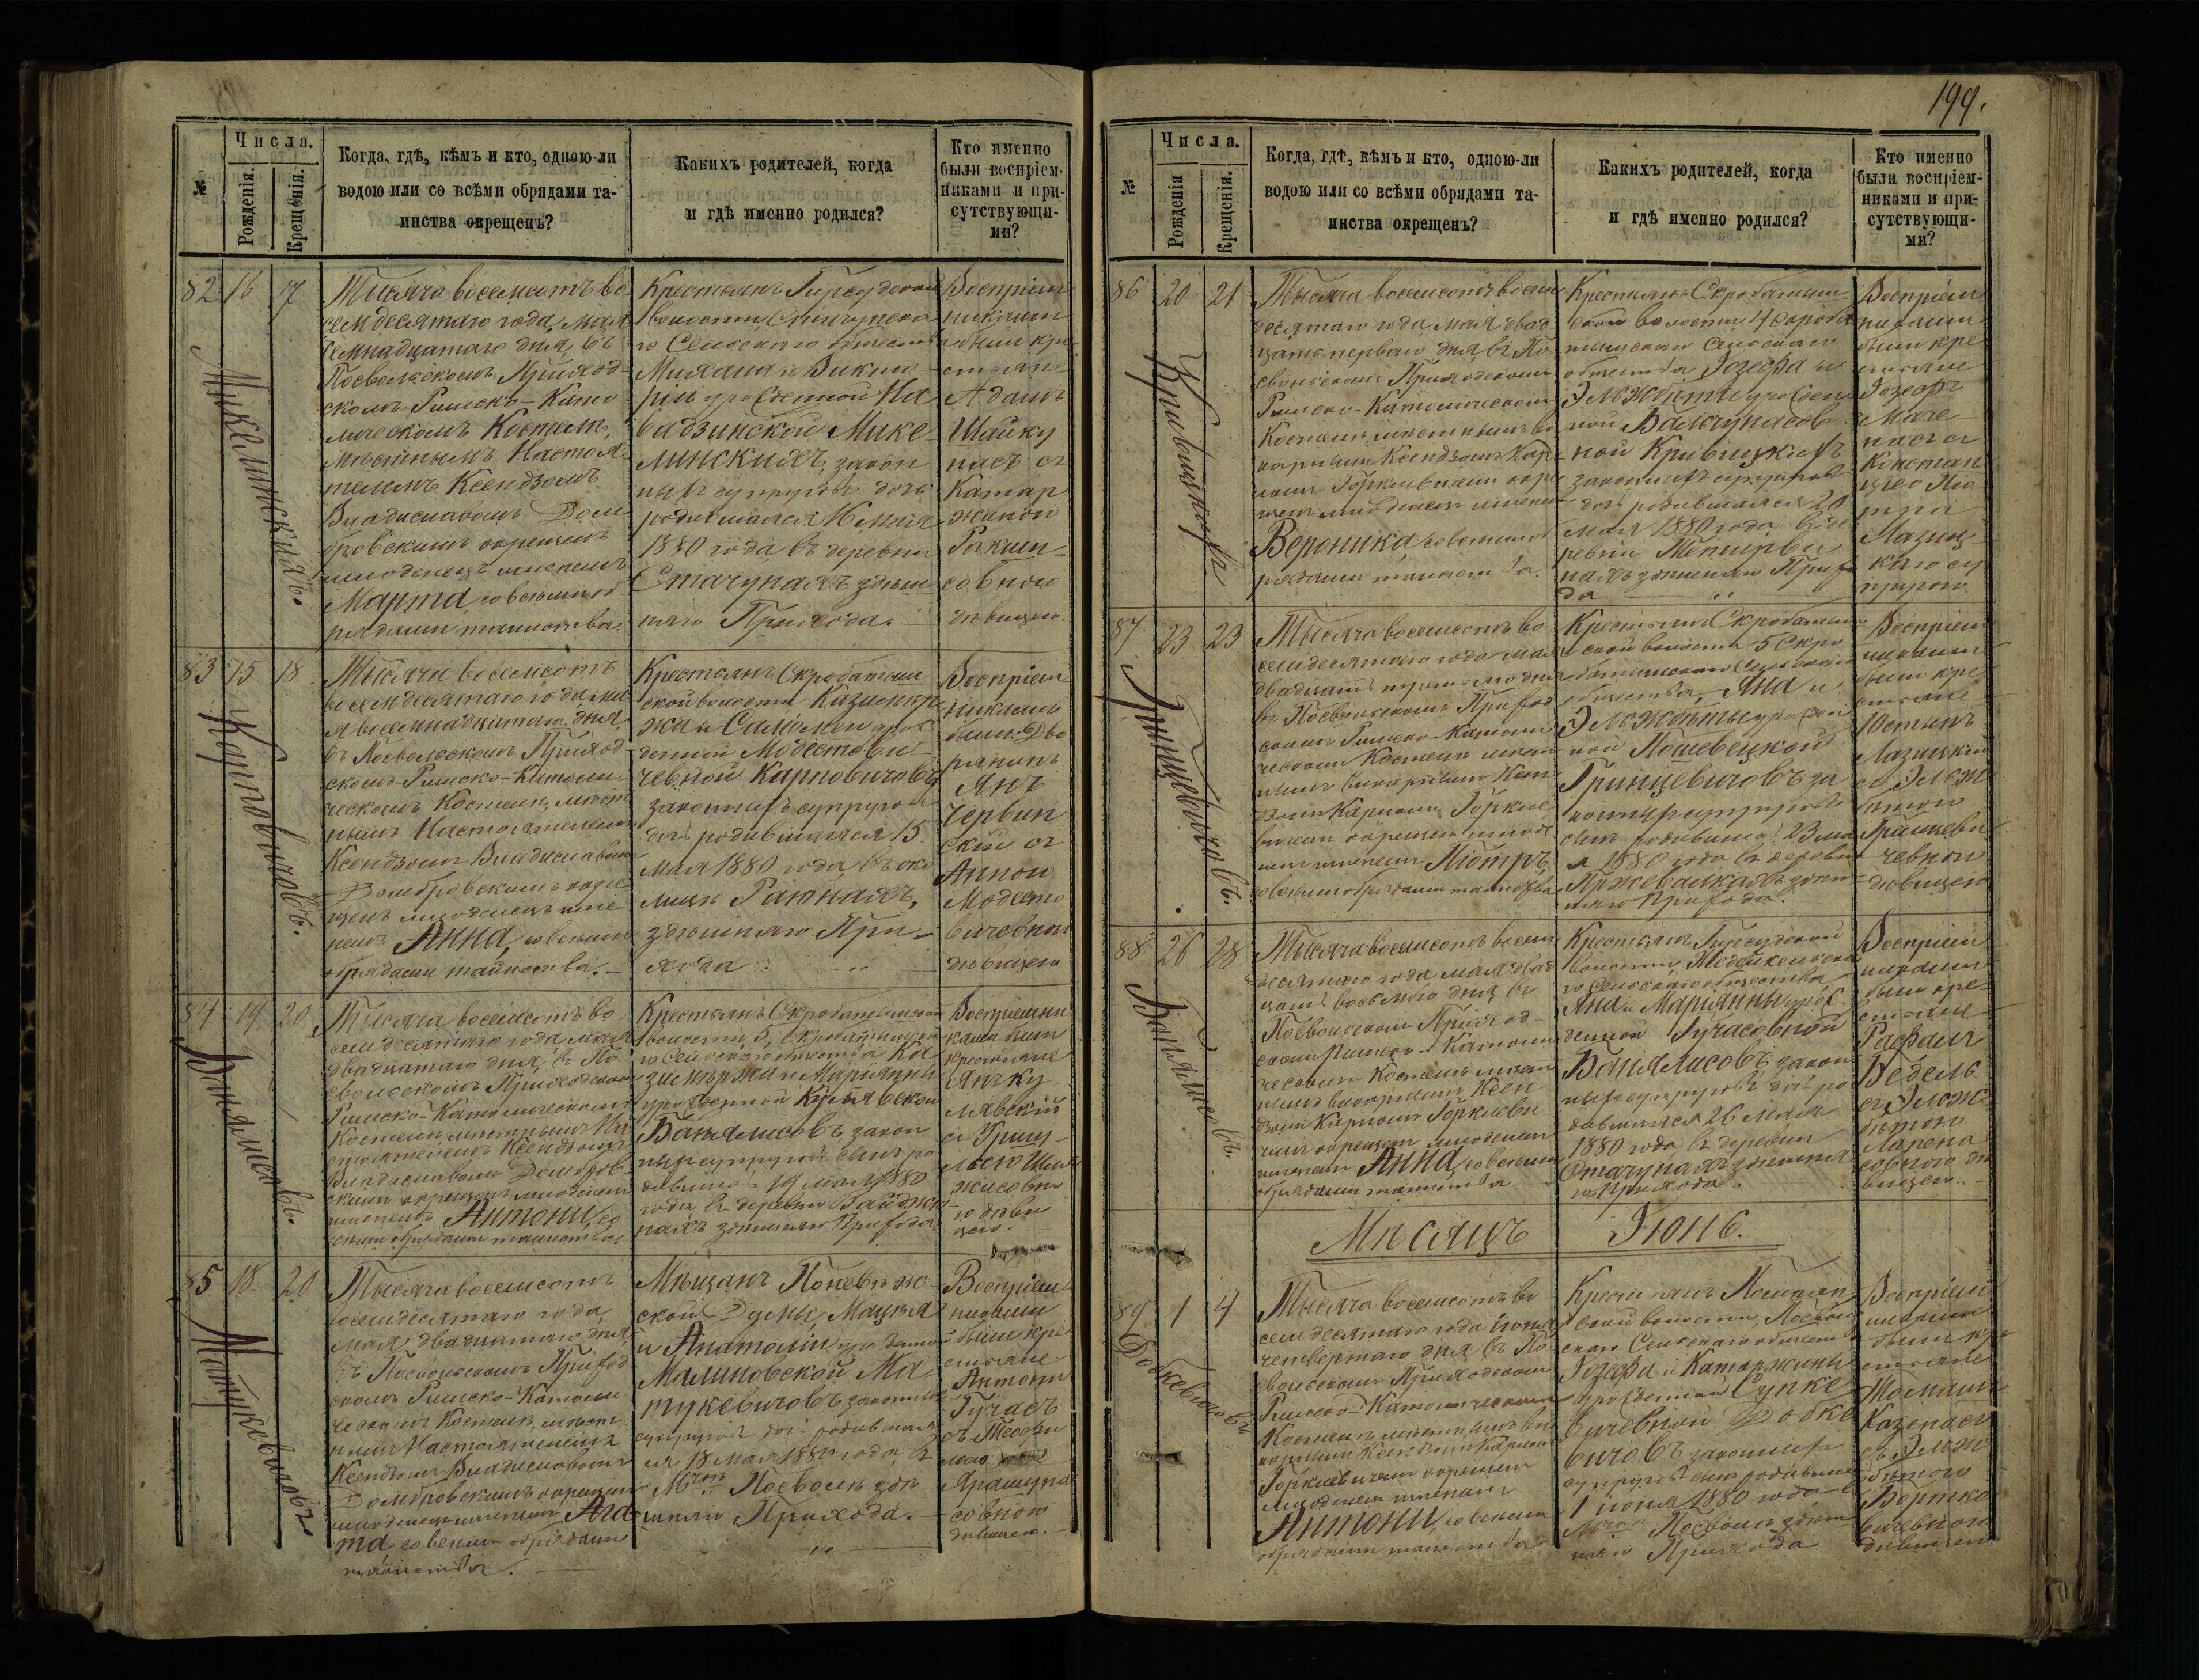 №
Числа.
Рожденія.
Крещенія.
Когда, гдѣ, кѣмъ и кто, одною-ли
водою или со всѣми обрядами та-
инства окрещенъ?
Какихъ родителей, когда
и гдѣ именно родился?
Кто именно
были воспріем-
никами и при-
сутствующи-
ми?
82 16 17
Микелинскихъ.
Тысяча восемсотъ во
семдесятаго года, мая
семнадцатаго дня, въ
Посвольскомъ Приход-
скомъ Римско-Като
лическомъ Костелѣ,
мѣстнымъ Настоя
телемъ Ксендзомъ
Владиславомъ Дом
бровскимъ окрещенъ
младенецъ именемъ
Марта, со всѣми об
рядами таинства.
Крестьянъ Гирсудской
волости, Стачунска
го Сельскаго общества
Михаила и Викто
ріи урожденной На
вадзинской Мике-
линскихъ, закон
ныхъ супруговъ дочь
родившаяся 16 мая
1880 года, въ деревни
Стачунахъ здѣш
няго Прихода.
Воспріем
никами
были кре
стьяне
Адамъ
Шайку
насъ съ
Катар
жиной
Рокин-
совною
дѣвицею.
83 15 18
Карповичовъ.
Тысяча восемсотъ
восемдесятаго года, ма
я восемнадцатаго дня,
въ Посвольскомъ Приход
скомъ Римско-Католи
ческомъ Костелѣ, мѣст
нымъ Настоятелемъ
Ксендзомъ Владиславомъ
Домбровскимъ окре
щенъ младенецъ име
немъ Анна, со всѣми
обрядами таинства.
Крестьянъ Скробатыш
ской волости Казимир
жа и Саломеи урож
денной Модестови-
чевной Карповичовъ
законныхъ супруговъ
дочь родившаяся 15
мая 1880 года, въ око
лицѣ Раюнахъ,
здѣшняго При-
хода.
Воспріем
никами
были Дво
рянинъ
Янъ
Червин
скій съ
Анною
Модесто
вичевною
дѣвицею
84 19 20
Банялисовъ.
Тысяча восемсотъ во
семдесятаго года мая
двадцатаго дня, въ По-
свольскомъ Приходскомъ
Римско-Католическомъ
Костелѣ, мѣстнымъ На
стоятелемъ Ксендзомъ
Владиславомъ Домбров
скимъ окрещенъ младенецъ
именемъ Антони, со
всѣми обрядами таинства.
Крестьянъ Скробатышской
волости, 5, Скробатышска
го Сельскаго общества Ка
зимѣржа и Маріянны
урожденной Кулявской
Банялисовъ закон
ныхъ супруговъ сынъ ро
дившійся 19 мая 1880
года въ деревни Гайджю
нахъ здѣшняго Прихода.
Воспріемни
ками были
крестьяне
Янъ Ку
лявскій
съ Уршу-
лею
ю дѣви
цею.
85 18 20
Матукевичовъ
Тысяча восемсотъ
восемдесятаго года,
мая двадцатаго дня,
въ Посвольскомъ Приход
скомъ Римско-Католи
ческомъ Костелѣ, мѣст
нымъ Настоятелемъ
Ксендзомъ Владиславомъ
Домбровскимъ окрещенъ
младенецъ именемъ Ага
та со всѣми обрядами
таинства.
Мѣщанъ Поневѣж
ской Думы, Мацѣя
и Анатоліи урожденной
Малиновской Ма
тукевичовъ законныхъ
супруговъ дочь родившая
ся 18 мая 1880 года, въ
Мѣст. Посволѣ здѣ
шняго Прихода.
Воспріем
никами
были кре
стьяне
Антони
Гучасъ
съ Теофи
лею
Ярашуна
совною
дѣвицею.
199.
№
Числа.
Рожденія
Крещенія.
Когда, гдѣ, кѣмъ и кто, одною-ли
водою или со всѣми обрядами та-
инства окрещенъ?
Какихъ родителей, когда
и гдѣ именно родился?
Кто именно
были воспріем-
никами и при-
сутствующи-
ми?
86 20 21
Кривицкихъ
Тысяча восемсотъ восем
десятаго года мая двад
цать перваго дня, въ По
свольскомъ Приходскомъ
Римско-Католическомъ
Костелѣ, мѣстнымъ ви
каріемъ Ксендзомъ Кар
ломъ Горкевичемъ окре
щенъ младенецъ именемъ
Вероника, со всѣми об
рядами таинства.
Крестьянъ Скробатыш
ской волости 4 Скроба
тышскаго Сельскаго
общества Іозефа и
Эльжбеты урожден
ной Бальчунасов
ной Кривицкихъ
законныхъ супруговъ
дочь родившаяся 20
мая 1880 года въ де
ревни
нахъ здѣшняго Прихо
да.
Воспріем
никами
были кре
стьяне
Іозефъ
Маче
насъ съ
Констан
цією Піо
тра
Лазиц
каго су
пругою.
87 23 23
Гринцевичовъ.
Тысяча восемсотъ во
семдесятаго года мая
двадцать третьяго дня
въ Посвольскомъ Приход
скомъ Римско-Католи
ческомъ Костелѣ, мѣст
нымъ викаріемъ Ксен
дзомъ Карломъ Горкев
ичемъ окрещенъ младе
нецъ именемъ Піотръ,
со всѣми обрядами таинства.
Крестьянъ Скробатыш
ской волости 5 Скро
батышскаго Сельскаго
общества, Яна и
Эльжбеты урожден
ной Пошевецкой
Гринцевичовъ за
конныхъ супруговъ
сынъ родившійся 23 ма
я 1880 года въ деревни
Пржевалкахъ здѣш
няго Прихода.
Воспріем
никами
были кре
стьяне
Юстинъ
Лазицкій
съ Эльж
бетою
Гришкеви
чевною
дѣвицею
88 26 28
Банялисовъ.
Тысяча восемсотъ восем
десятаго года мая двад
цать восьмого дня, въ
Посвольскомъ Приход
скомъ Римско-Католи
ческомъ Костелѣ, мѣст
нымъ викаріемъ Ксен
дзомъ Карломъ Горкеви
чемъ окрещенъ младенецъ
именемъ Анна, со всѣми
обрядами таинства.
Крестьянъ Гирсудской
волости,
го Сельскаго общества
Яна и Маріянны урож
денной Гучасовной
Банялисовъ закон
ныхъ супруговъ дочь ро
дившаяся 26 мая
1880 года, въ деревни
Стачунахъ здѣшня
го Прихода.
Воспріем
никами
были кре
стьяне
Рафалъ
Бедель
съ Эльж
бетою
Ларена
совною дѣ
вицею.
Мѣсяцъ Іюнь.
89 1 4
Добкевичовъ
Тысяча восемсотъ во
семдесятаго года іюня
четвертаго дня въ По
свольскомъ Приходскомъ
Римско-Католическомъ
Костелѣ, мѣстнымъ ви
каріемъ Ксендзомъ Карломъ
Горкевичемъ окрещенъ
младенецъ именемъ
Антони, со всѣми
обрядами таинства
Крестьянъ
ской волости, Посволь
скаго Сельскаго общества
Іозефа и Катаржины
урожденной Супке
вичевной Добке
вичовъ законныхъ
супруговъ сынъ родившійся
1 іюня 1880 года въ
Мѣст. Посволѣ здѣш
няго Прихода
Воспріем
никами
были кре
стьяне
Томашъ
Казенасъ
съ Эльж
бетою
Бартке
вичевною
дѣвицею